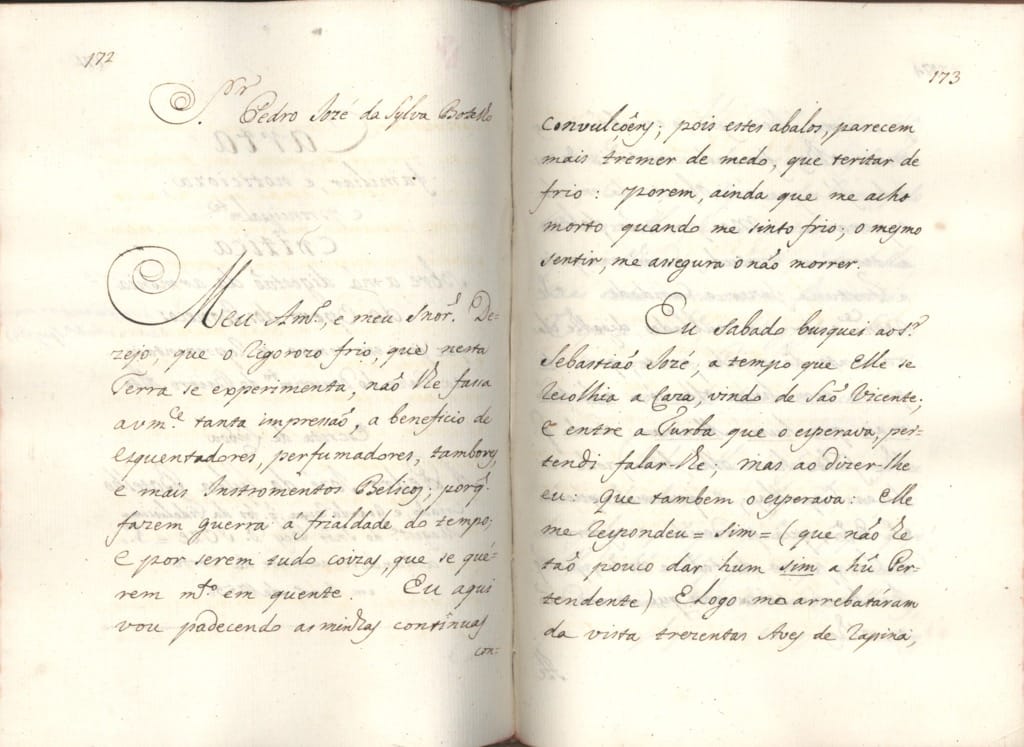 172
S.r Pedro Jozé da Sylva Botelho
Meu Am.º, e meu Snõr. De=
zejo, que o Rigorozo frio, que nesta
Terra se experimenta, naõ lhe fassa
avm.ce tanta impressaõ, a beneficio de
esquentadores, perfumadores, tambores,
e mais Instromentos Belicos; porq̃.
fazem guerra á frialdade do tempo;
E por serem tudo coizas, que se qué=
rem m.to em quente. Eu aqui
vou padecendo as minhas continuas
con=
173
Convulçoẽns; pois estes abalos, parecem
mais tremer de medo, que teritar de
frio: porem, ainda que me acho
morto quando me sinto frio; o mesmo
sentir, me assegura o naõ morrer.
Eu Sabado busquei aoS.r
Sebastiaõ Jozé, a tempo que Elle se
Recolhia a Caza, vindo de Saõ Vicente;
E entre a Turba que o esperava, per=
tendi falar-lhe; mas ao dizer-lhe
eu: que tambem o esperava: Elle
me Respondeu = Sim = (que naõ he
taõ pouco dar hum sim a hũ Per=
tendente) E Logo mo arrebatáram
da vista trezentas Aves de Rapina,